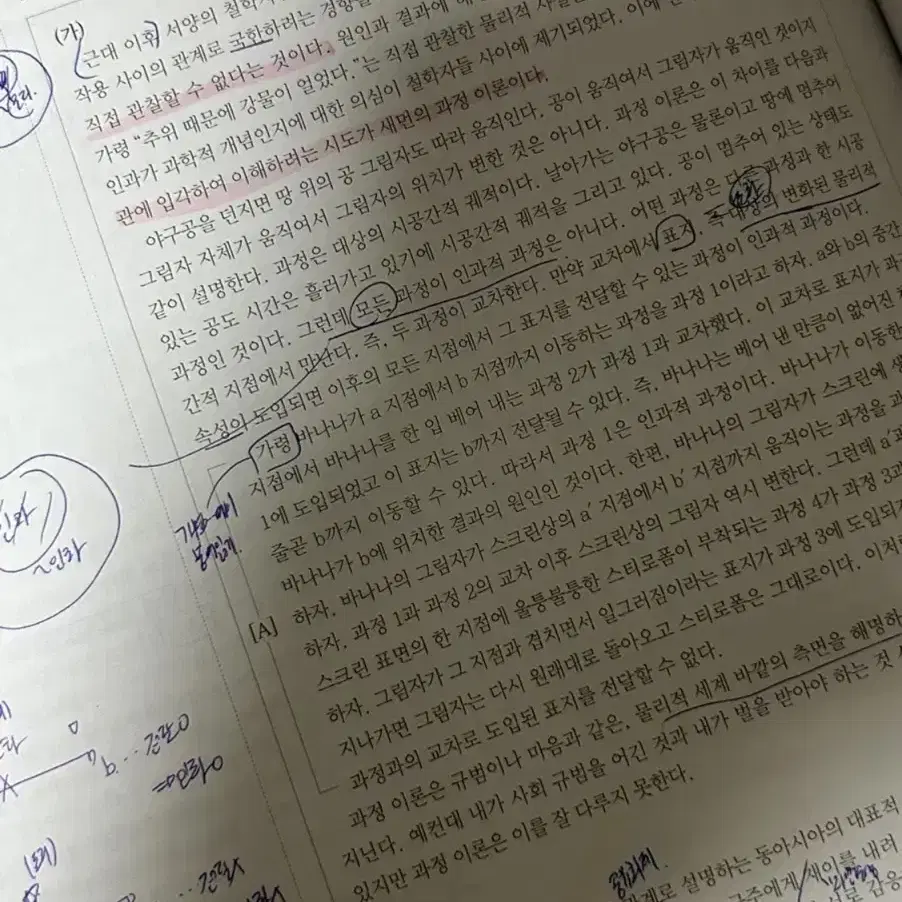 (가) 근대 이후 서양의 철학자
작용 사이의 관계로 국한하려는 경향을
직접 관찰할 수 없다는 것이다. 원인과 결과에
가령 “추위 때문에 강물이 얼었다.”는 직접 관찰한 물리적 사실을
인과가 과학적 개념인지에 대한 의심이 철학자들 사이에 제기되었다. 이에
관에 입각하여 이해하려는 시도가 새먼의 과정 이론이다.
야구공을 던지면 땅 위의 공 그림자도 따라 움직인다. 공이 움직여서 그림자가 움직인 것이지
그림자 자체가 움직여서 그림자의 위치가 변한 것은 아니다. 과정 이론은 이 차이를 다음과
같이 설명한다. 과정은 대상의 시공간적 궤적이다. 날아가는 야구공은 물론이고 땅에 멈추어
있는 공도 시간은 흘러가고 있기에 시공간적 궤적을 그리고 있다. 공이 멈추어 있는 상태도
과정인 것이다. 그런데 모든 과정이 인과적 과정은 아니다. 어떤 과정은 다른 과정과 한 시공
간적 지점에서 만난다. 즉, 두 과정이 교차한다. 만약 교차에서 표지, 즉 대상의 변화된 물리적
속성이 도입되면 이후의 모든 지점에서 그 표지를 전달할 수 있는 과정이 인과적 과정이다.
가령 바나나가 a 지점에서 b 지점까지 이동하는 과정을 과정 1이라고 하자. a와 b의 중간
지점에서 바나나를 한 입 베어 내는 과정 2가 과정 1과 교차했다. 이 교차로 표지가 과정
1에 도입되었고 이 표지는 b까지 전달될 수 있다. 즉, 바나나는 베어 낸 만큼이 없어진
줄곧 b까지 이동할 수 있다. 따라서 과정 1은 인과적 과정이다. 바나나가 이동한
바나나가 b에 위치한 결과의 원인인 것이다. 한편, 바나나의 그림자가 스크린에
하자. 바나나의 그림자가 스크린상의 a′ 지점에서 b′ 지점까지 움직이는 과정을
하자. 과정 1과 과정 2의 교차 이후 스크린상의 그림자 역시 변한다. 그런데 a′과
[A] 스크린 표면의 한 지점에 울퉁불퉁한 스티로폼이 부착되는 과정 4가 과정 3과
하자. 그림자가 그 지점과 겹치면서 일그러짐이라는 표지가 과정 3에 도입되지
지나가면 그림자는 다시 원래대로 돌아오고 스티로폼은 그대로이다. 이처럼
과정과의 교차로 도입된 표지를 전달할 수 없다.
과정 이론은 규범이나 마음과 같은, 물리적 세계 바깥의 측면을 해명하
지닌다. 예컨대 내가 사회 규범을 어긴 것과 내가 벌을 받아야 하는 것
있지만 과정 이론은 이를 잘 다루지 못한다.
관계로 설명하는 동아시아의 대표적
군주에게 재이를 내려
인과
~인과
b